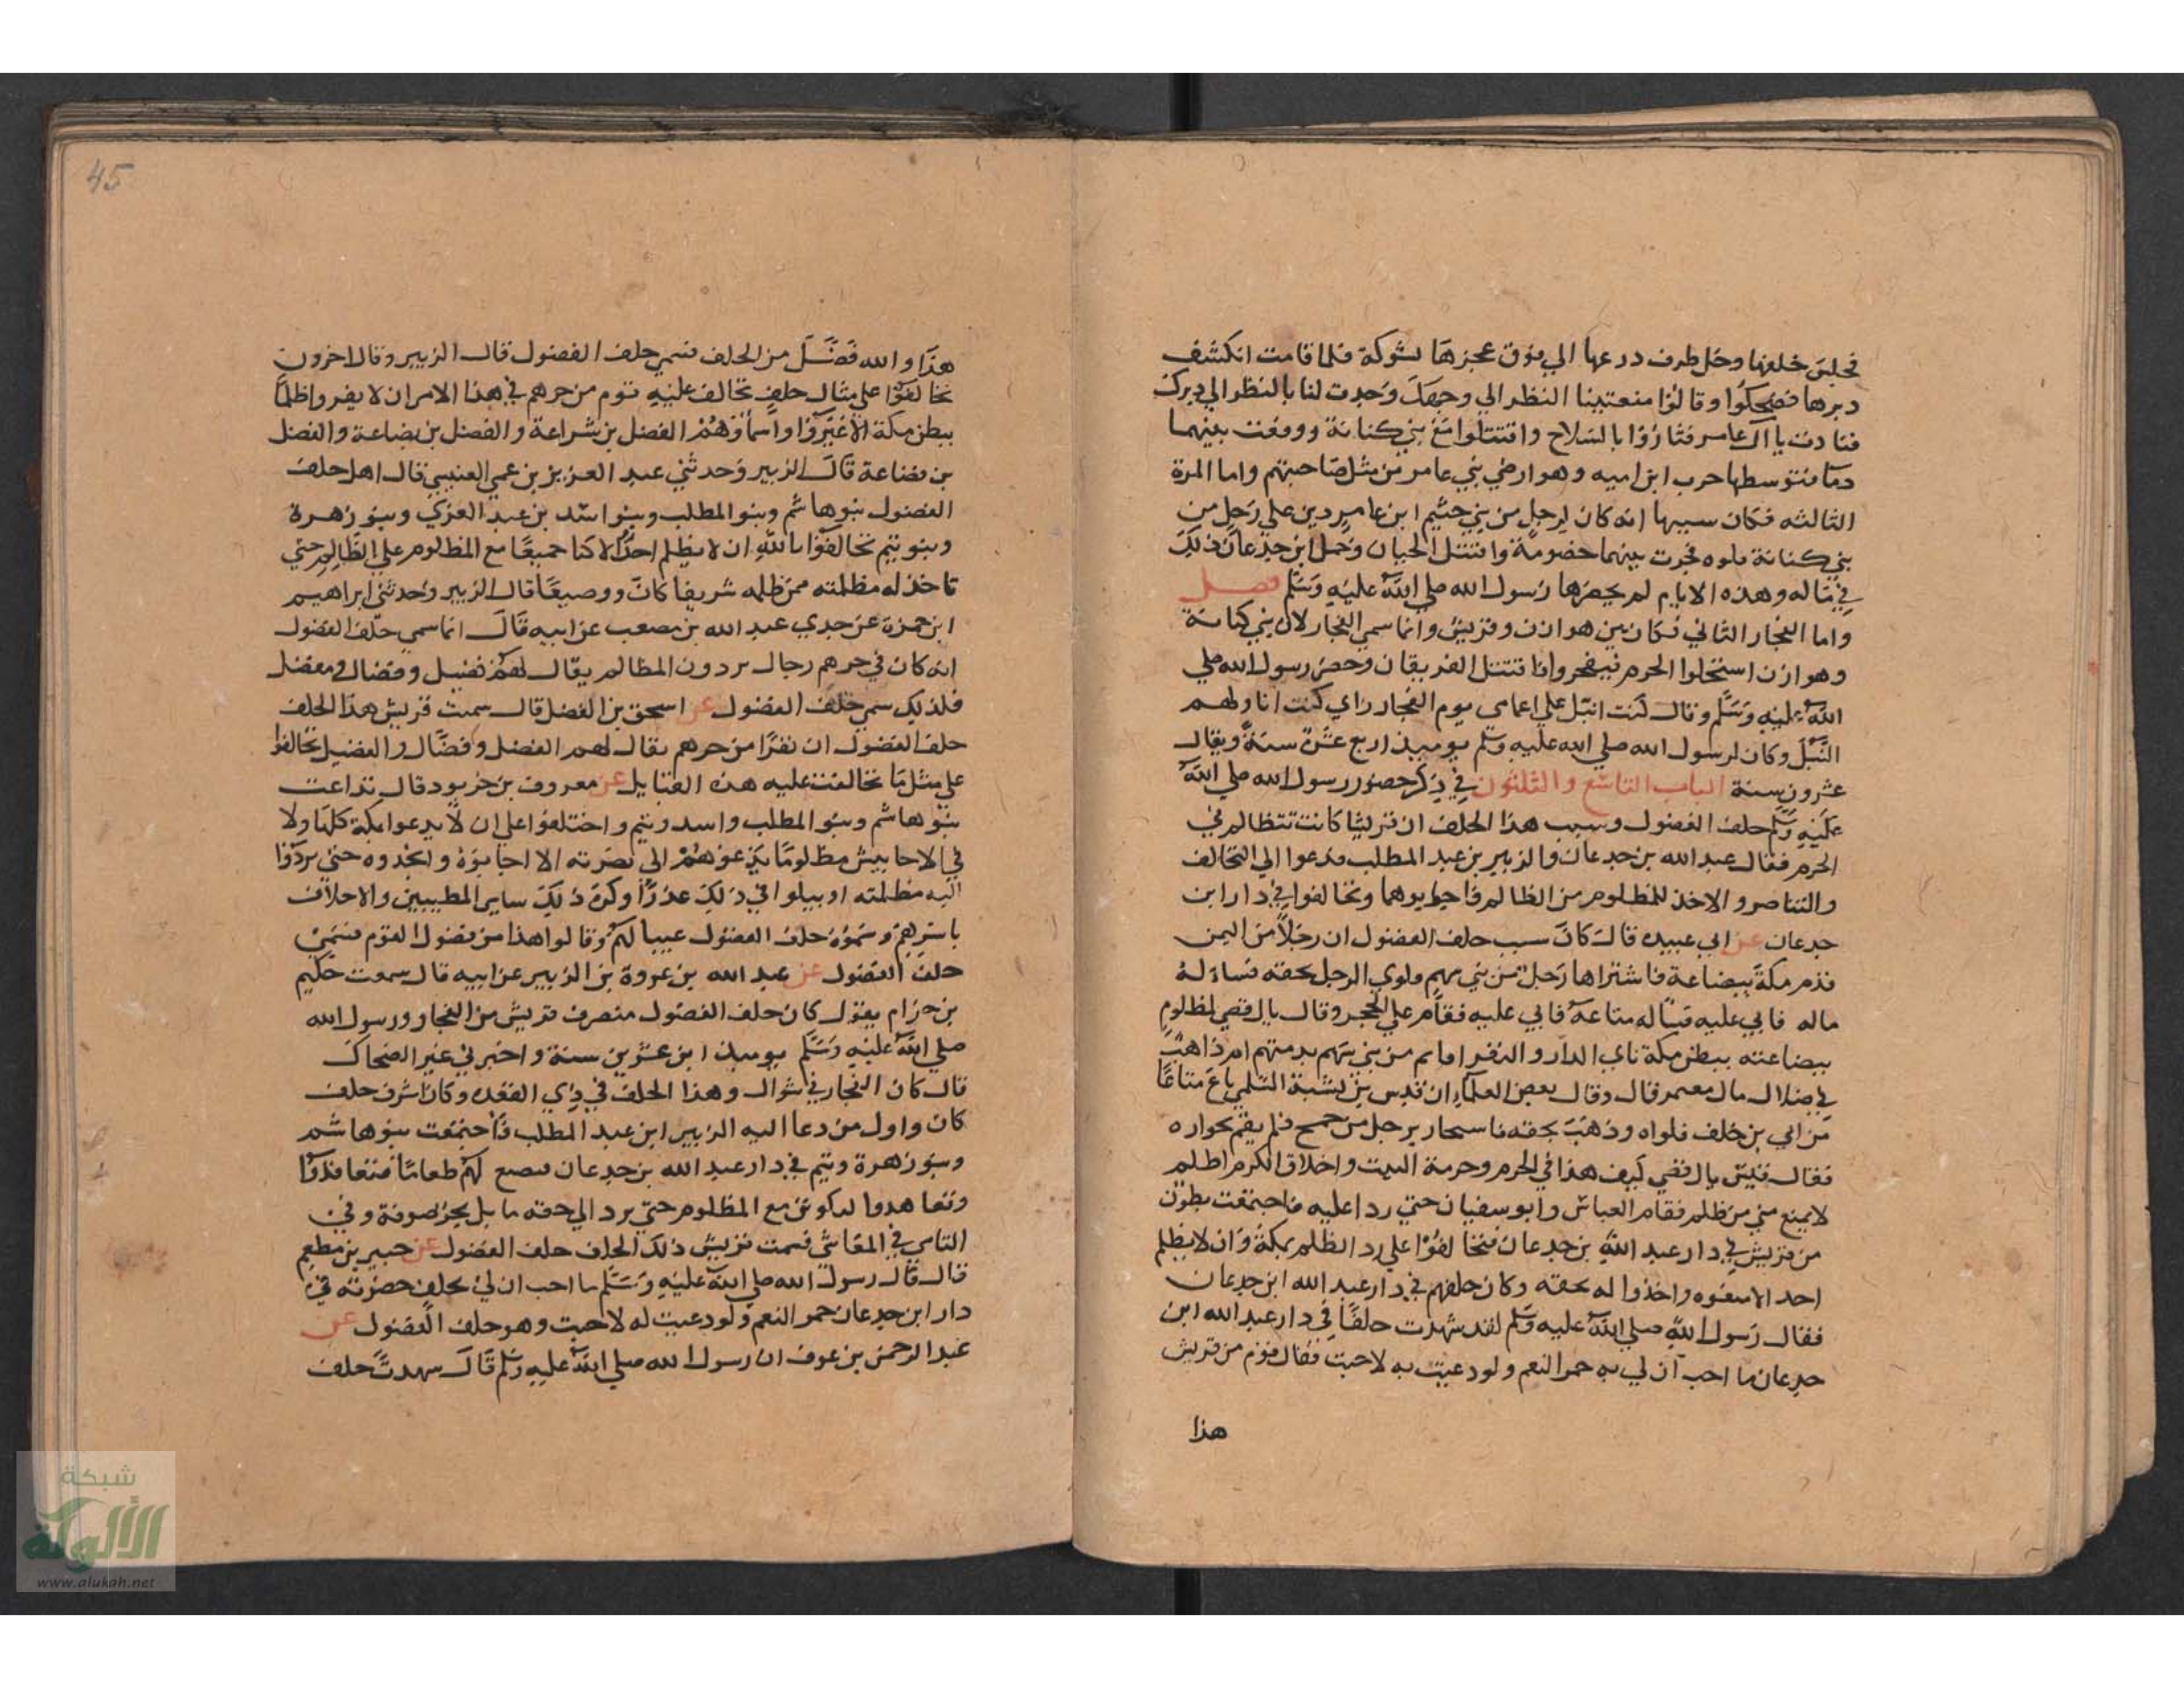 فجلس خلفها وحل طرف درعها الي فوق عجزها بشوكة فلما قامت انكشف
دبرها فضحكوا وقالوا منعتينا النظر الي وجهك وجدت لنا بالنظر الي دبرك
فنادت يا ال عامر فثاروا بالسلاح واقتتلوا مع بني كنانة ووقعت بينهما
دما فتوسطها حرب ابن اميه وهو ارضي بني عامر من مثل صاحبتهم واما المرة
الثالثه فكان سببها انه كان لرجل من بني جشيم ابن عامر دين علي رجل من
بني كنانة فلوه فجرت بينهما خصومة واقتتل الحيان وحمل ابن جدعان ذلك
في ماله وهذه الايام لم يحضرها رسول الله صلي الله عليه وسلم فصل
واما الفجار الثاني فكان بين هوازن وقريش وانما سمي الفجار لان بني كنانة
وهوازن استحلوا الحرم فيفجروا فاقتتل الفريقان وحضر رسول الله صلي
الله عليه وسلم وقال كنت انبل علي اعمامي يوم الفجار راي كنت اناولهم
النبل وكان لرسول الله صلي الله عليه وسلم يوميذ اربع عشرة سنة ويقال
عشرون سنة الباب التاسع والثلثون في ذكر حضور رسول الله صلي الله
عليه وسلم حلف الفضول وسبب هذا الحلف ان قريشا كانت تتظالم في
الحرم فقال عبد الله بن جدعان والزبير بن عبد المطلب فدعوا الي التحالف
والتناصر والاخذ للمظلوم من الظالم فاجابوهما وتحالفوا في دار ابن
جدعان عن ابي عبيده قال كان سبب حلف الفضول ان رجلا من اليمن
قدم مكة ببضاعة فاشتراها رجل من بني سهم ولوي الرجل بحقه فساله
ماله فابي عليه فساله متاعه فابي عليه فقام علي الحجر وقال يال قصي لمظلوم
بضاعته ببطن مكة ناي الدار والنفر اقايم من بني سهم بذمتهم ام ذاهب
في ضلال مال معتمر قال وقال بعض العلماء ان قيس بن شبة السلمي باع متاعا
من ابي بن خلف فلواه وذهب بحقه فاستجار برجل من جمح فلم يقم بجواره
فقال قيس يال قصي كيف هذا في الحرم وحرمة البيت واخلاق الكرم اظلم
لا يمنع مني من ظلم فقام العباس وابو سفيان حتي ردا عليه فاجتمعت بطون
من قريش في دار عبد الله بن جدعان فتحالفوا علي رد الظلم بمكة وان لا يظلم
احد الا منعوه واخذوا له بحقه وكان حلفهم في دار عبد الله ابن جدعان
فقال رسول الله صلي الله عليه وسلم لقد شهدت حلفا في دار عبد الله ابن
جدعان ما احب ان لي به حمر النعم ولو دعيت به لاجبت فقال قوم من قريش
هذا
45
هذا والله فضل من الحلف فسمي حلف الفضول قال الزبير وقال اخرون
تحالفوا علي مثال حلف تحالف عليه قوم من جرهم في هذا الامر ان لا يقروا ظلما
ببطن مكة الا غيروا واسماؤهم الفضل بن شراعة والفضل بن بضاعة والفضل
بن قضاعة قال الزبير وحدثني عبد العزيز بن عمي العنبسي قال اهل حلف
الفضول بنو هاشم وبنو المطلب وبنو اسد بن عبد العزي وبنو زهرة
وبنو تيم تحالفوا بالله ان لا يظلم احدا الا كنا جميعا مع المظلوم علي الظالم حتي
تاخذ له مظلمته ممن ظلمه شريفا كان ووضيعا قال الزبير وحدثني ابراهيم
ابن حمزة عن جدي عبد الله بن مصعب عن ابيه قال انما سمي حلف الفضول
انه كان في جرهم رجال يردون المظالم يقال لهم فضيل وفضال ومفضل
فلذلك سمي حلف الفضول عن اسحق بن الفضل قال سميت قريش هذا الحلف
حلف الفضول ان نفرا من جرهم يقال لهم الفضل وفضال والفضيل تحالفوا
علي مثل ما تحالفت عليه هذه القبايل عن معروف بن خربود قال تداعت
بنو هاشم وبنو المطلب واسد وتيم واختلفوا علي ان لا يدعوا بمكة كلها ولا
في الاحابيش مظلوما يدعوهم الي نصرته الا اجابوه وانجدوه حتي يردوا
اليه مظلمته او يبلوا في ذلك عذرا وكره ذلك ساير المطيبين والاحلاف
باسرهم وسموه حلف الفضول عيبا لهم وقالوا هذا من فضول القوم فسمي
حلف الفضول عن عبد الله بن عروة بن الزبير عن ابيه قال سمعت حكيم
بن حزام يقول كان حلف الفضول منصرف قريش من الفجار ورسول الله
صلي الله عليه وسلم يوميذ ابن عشرين سنة واخبرني غير الضحاك
قال كان الفجار في شوال وهذا الحلف في ذي القعده وكان اشرف حلف
كان واول من دعا اليه الزبير ابن عبد المطلب فاجتمعت بنو هاشم
وبنو زهرة وتيم في دار عبد الله بن جدعان فصنع لهم طعاما فتعاقدوا
وتعاهدوا ليكونن مع المظلوم حتي يرد الي حقه ما بل بحر صوفة وفي
التاسي في المعاش فسمت قريش ذلك الحلف حلف الفضول عن جبير بن مطعم
قال قال رسول الله صلي الله عليه وسلم ما احب ان لي بحلف حضرته في
دار ابن جدعان حمر النعم ولو دعيت له لاجبت وهو حلف الفضول عن
عبد الرحمن بن عوف ان رسول الله صلي الله عليه وسلم قال شهدت حلف
شبكة
الألوكة
www.alukah.net